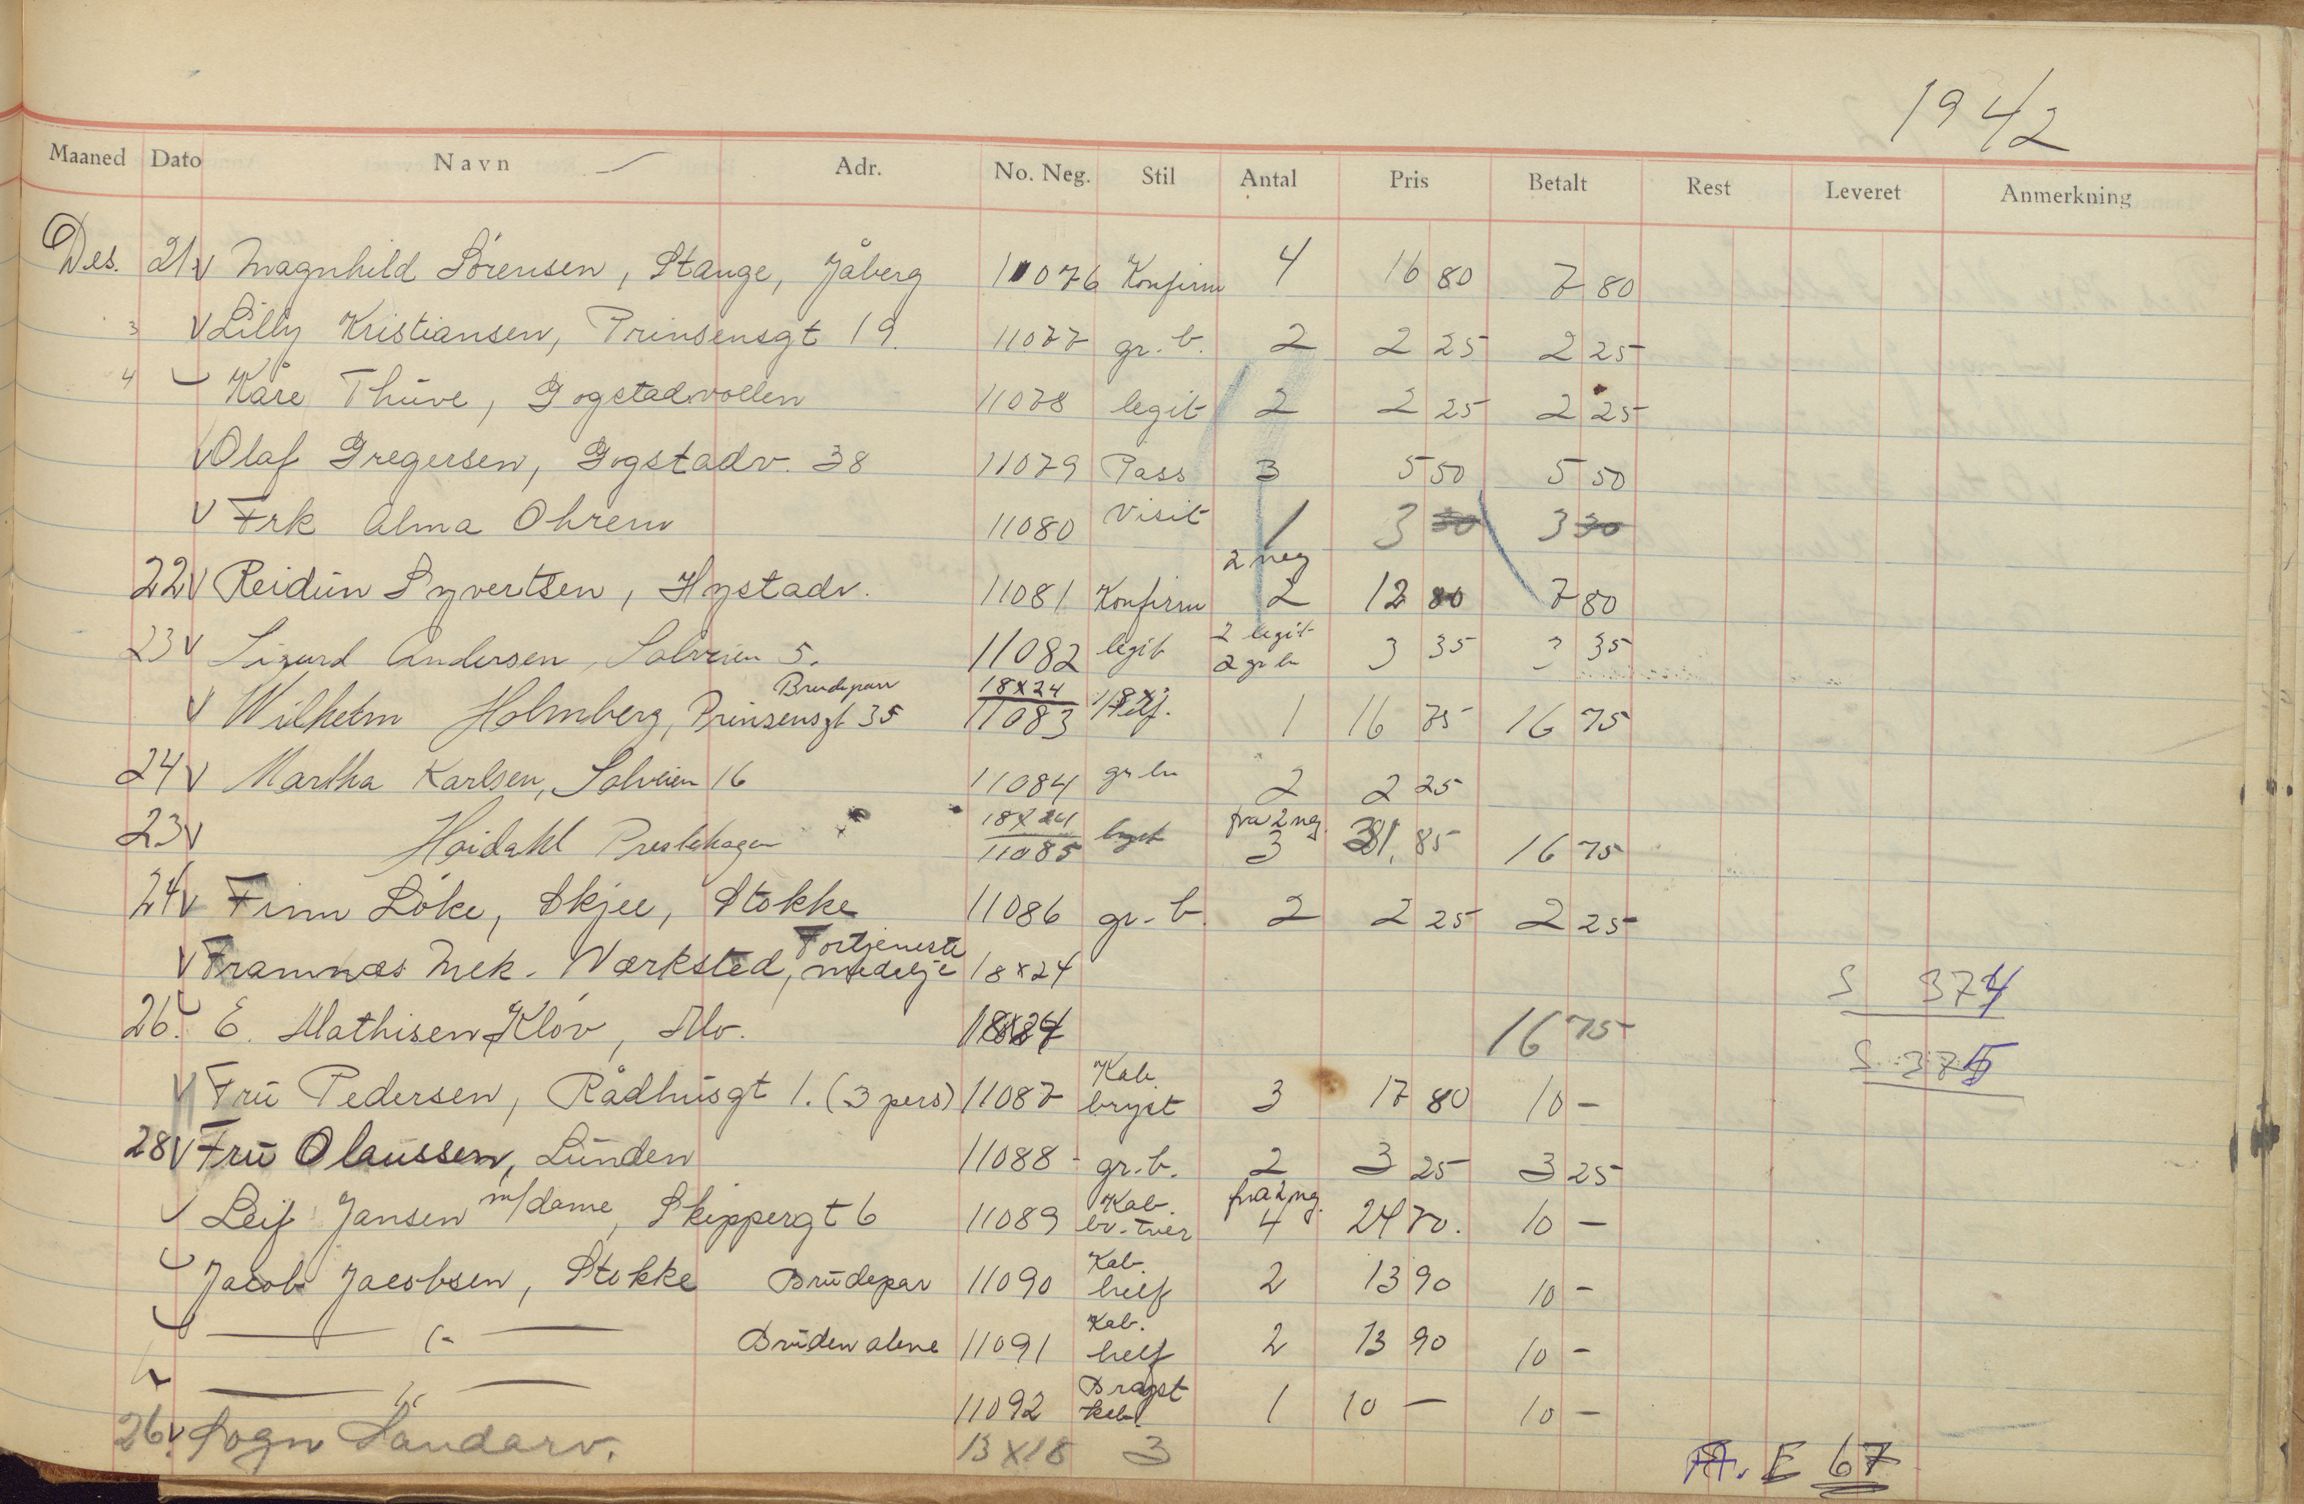 1942
Maaned Dato Navn Adr. No. Neg. Stil Antal Pris Betalt Rest Leveret Anmerkning
Des. 21 v Magnhild Sörensen, Stange, Jåberg 11076 Konfirm 4 16 80 7 80
3 v Lilly Kristiansen, Prinsensgt 19. 11077 gr. b. 2 2 25 2 25
4 Kåre Thuve, Gogstadvollen 11078 legit 2 2 25 2 25
v Olaf Gregersen, Gogstadv. 38 11079 Pass 3 5 50 5 50
v Frk Alma Ohrem 11080 Visit 1 3 30 3 30
2 neg
22 v Reidun Syvertsen, Hystadv. 11081 Konfirm 2 12 80 7 80
23 v Sigurd Andersen, Solveien 5. 11082 legit 2 legit 2 gr br 3 35 3 35
Brudepar 18x24
v Wilhelm Holmberg, Prinsensgt 35 11083 1 16 75 16 75
24 v Martha Karlsen, Solveien 16 11084 gr br 2 2 25
18x24 fra 2 ng.
23 v Hoidahl Prestehagen 11085 bryst 3 31,85 16 75
24 v Finn Löke, Skjee, Stokke 11086 gr. b. 2 2 25 2 25
Fortjeneste
v Framnæs Mek. Værksted, medalje 18x24 S 374
26. E. Mathisen Klöv, Mo. 18x24 16 75
S 375
Kab.
v Fru Pedersen, Rådhusgt 1. (3 pers) 11087 bryst 3 17 80 10 -
28 v Fru Olaussen, Lunden 11088 - gr. b. 2 3 25 3 25
m/dame Kab. fra 2 ng.
v Leif Jansen, Skippergt 6 11089 br. tver 4 24 70. 10 -
Kab.
Jacob Jacobsen, Stokke Brudepar 11090 helf 2 13 90 10 -
Kab.
— " — Bruden alene 11091 helf 2 13 90 10 -
Bryst
— " — 11092 kab. 1 10 — 10 -
26 v Sogn Sandarv. 13x18 3
A. E 67